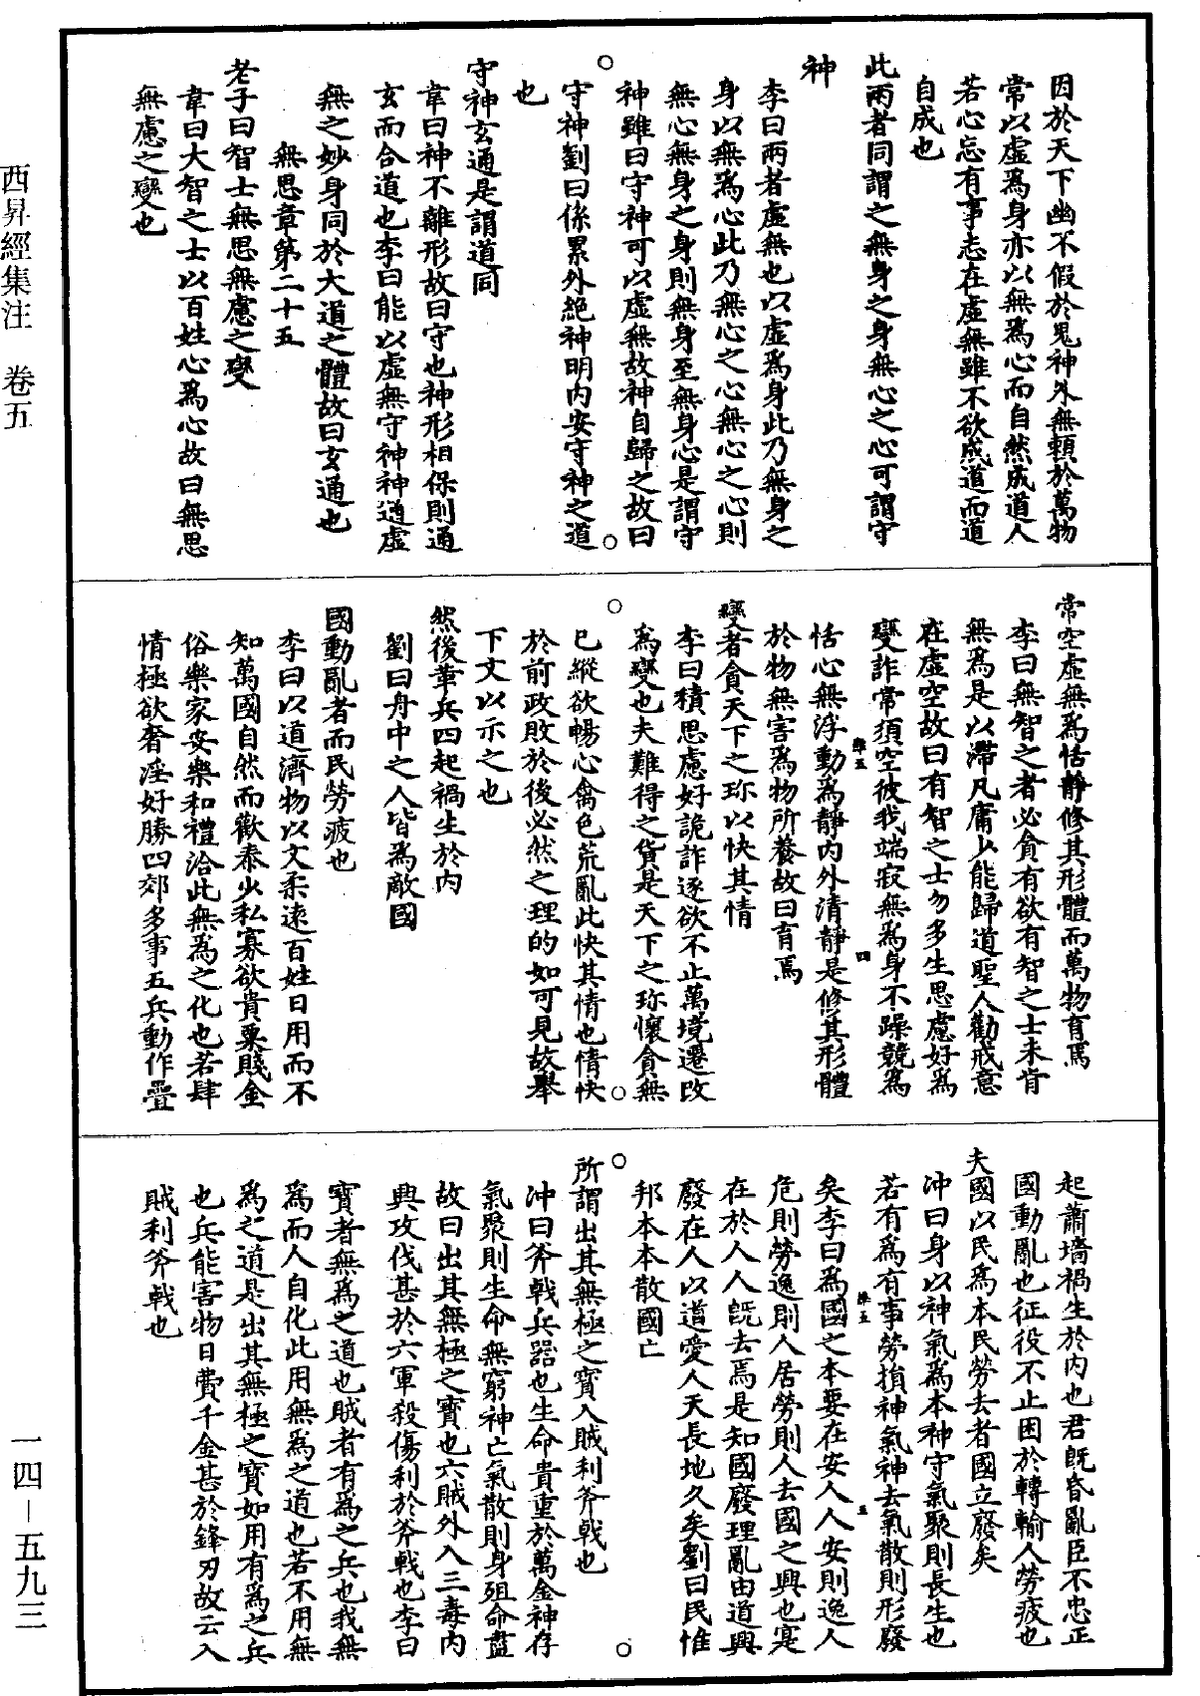 因於天下幽不假於鬼神外無賴於萬物
常以虛為身亦以無為心而自然成道人
若心忘有事志在虛無雖不欲成道而道
自成也
此兩者同謂之無身之身無心之心可謂守
神
李曰兩者虛無也以虛為身此乃無身之
身以無為心此乃無心之心無心之心則
無心無身之身則無身至無身心是謂守
神雖曰守神可以虛無故神自歸之故曰
守神劉曰係累外絕神明內安守神之道
也
守神玄通是謂道同
韋曰神不離形故曰守也神形相保則通
玄而合道也李曰能以虛無守神神通虛
無之妙身同於大道之體故曰玄通也
無思章第二十五
老子曰智士無思無慮之變
韋曰大智之士以百姓心為心故曰無思
無慮之變也
常空虛無為恬靜修其形體而萬物育焉
李曰無智之者必貪有欲有智之士未肯
無為是以滯凡庸少能歸道聖人勸戒意
在虛空故曰有智之士勿多生思慮好為
變詐常須空彼我端寂無為身不躁競為
恬心無浮動為靜內外清靜是修其形體
於物無害為物所養故曰育焉
變者貪天下之珎以快其情
李曰積思慮好詭詐逐欲不止萬境遷改
為變也夫難得之貨是天下之珎懷貪無
已縱欲暢心禽色荒亂此快其情也情快
於前政敗於後必然之理的如可見故舉
下文以示之也
然後華兵四起禍生於內
劉曰舟中之人皆為敵國
國動亂者而民勞疲也
李曰以道濟物以文柔遠百姓日用而不
知萬國自然而歡泰少私寡欲貴粟賤金
俗樂家安樂和禮洽此無為之化也若肆
情極欲奢淫好勝四郊多事五兵動作疊
起蕭墻禍生於內也君既昏亂臣不忠正
國動亂也征役不止困於轉輸人勞疲也
夫國以民為本民勞去者國立廢矣
沖曰身以神氣為本神守氣聚則長生也
若有為有事勞損神氣神去氣散則形廢
矣李曰為國之本要在安人人安則逸人
危則勞逸則人居勞則人去國之興也寔
在於人人既去焉是知國廢理亂由道興
廢在人以道愛人天長地久矣劉曰民惟
邦本本散國亡
所謂出其無極之寶入賊利斧戟也
沖曰斧戟兵器也生命貴重於萬金神存
氣聚則生命無窮神亡氣散則身殂命盡
故曰出其無極之寶也六賊外入三毒內
興攻伐甚於六軍殺傷利於斧戟也李曰
寶者無為之道也賊者有為之兵也我無
為而人自化此用無為之道也若不用無
為之道是出其無極之寶如用有為之兵
也兵能害物日費千金甚於鋒刃故云入
賊利斧戟也
西昇經集注　卷五
一四－五九三